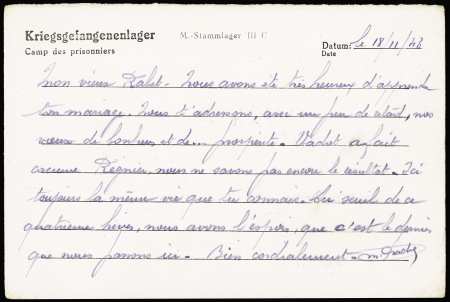 Kriegsgefangenenlager M.-Stammlager III C
Camp des prisonniers Datum: le 18/11/43
Date
Mon vieux Rabet - Nous avons été très heureux d'apprendre
ton mariage. Nous t'adressons, avec un peu de retard, nos
vœux de bonheur et de... prospérité - Vachot a fait
comme Régnier, nous ne savons pas encore le résultat - Ici
toujours la même vie que tu connais. Au seuil de ce
quatrième hiver, nous avons l'espoir, que c'est le dernier
que nous passons ici - Bien cordialement -